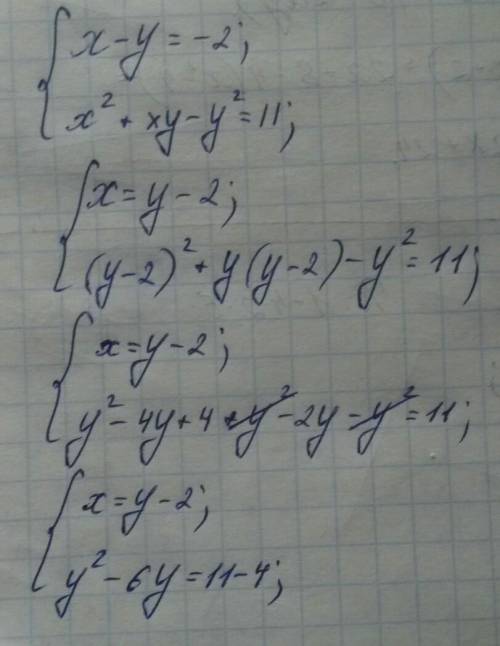 x - y = -2;
x² + xy - y² = 11;
x = y - 2;
(y-2)² + y(y-2) - y² = 11;
x = y - 2;
y² - 4y + 4 + y² - 2y - y² = 11;
x = y - 2;
y² - 6y = 11 - 4;